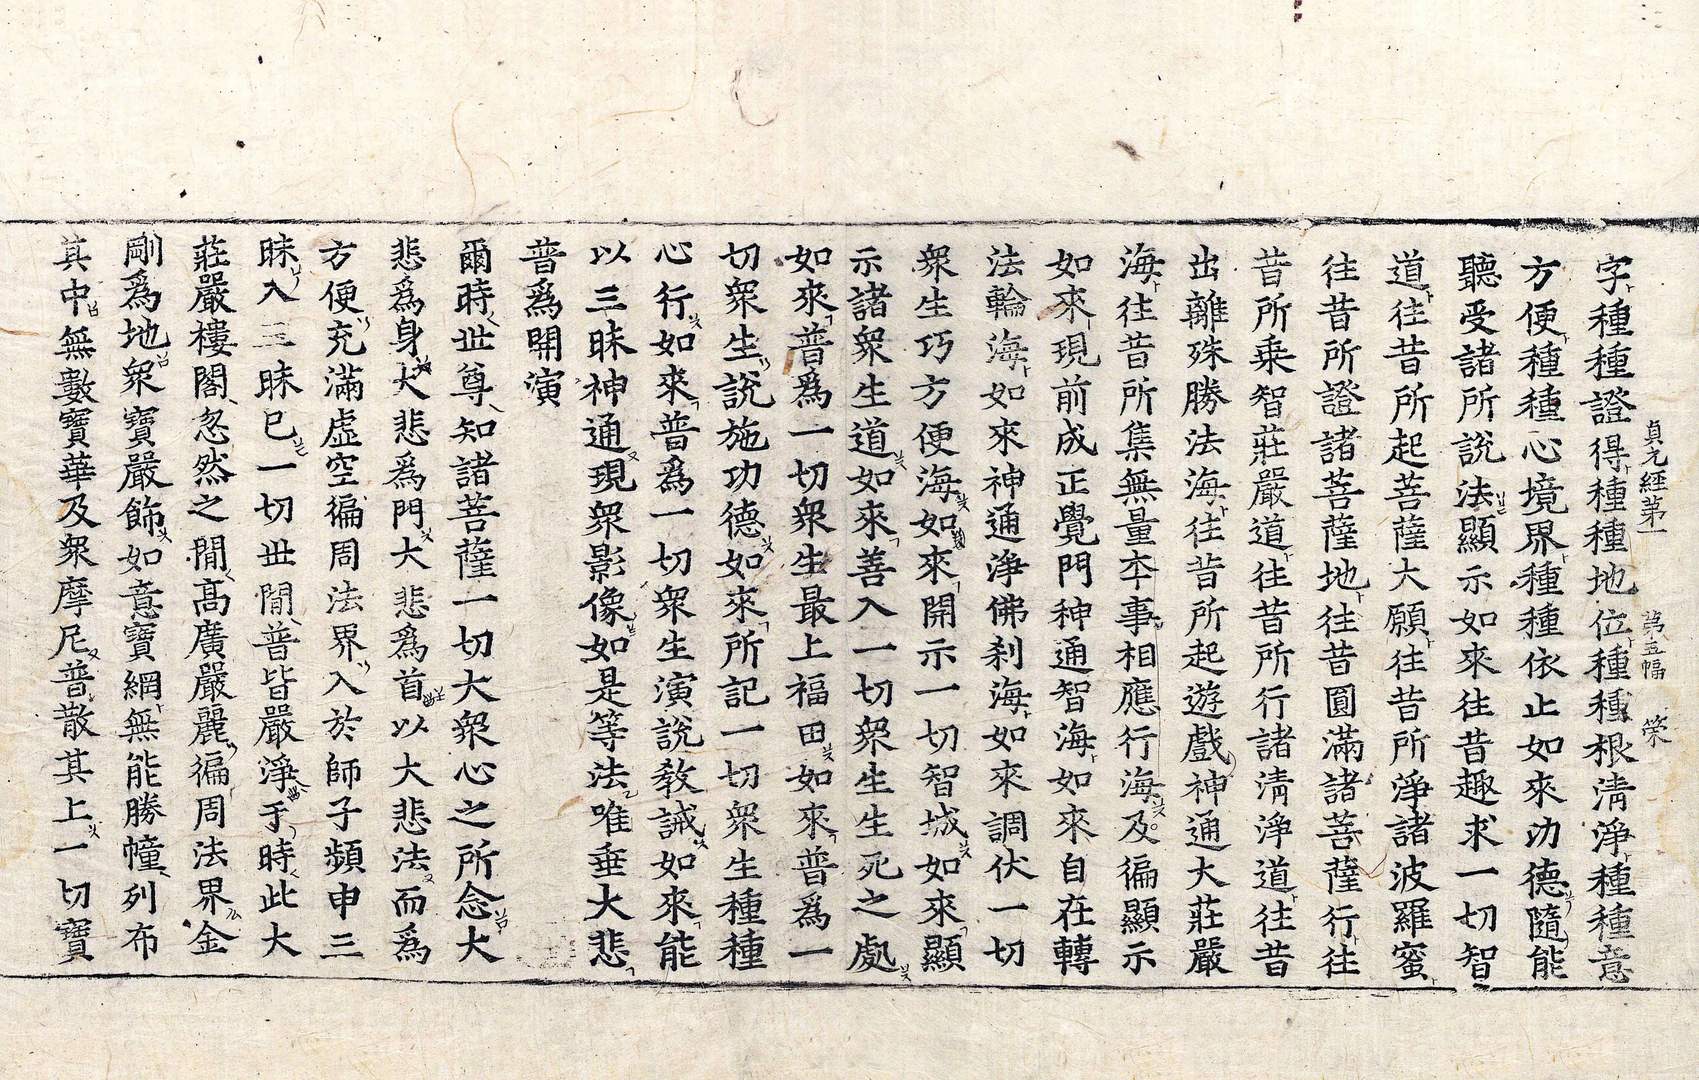 貞元經第一 第五幅 榮
字種種證得種種地位種種根清淨種種意
方便種種心境界種種依止如來功德隨能
聽受諸所說法顯示如來往昔趣求一切智
道往昔所起菩薩大願往昔所淨諸波羅蜜
往昔所證諸菩薩地往昔圓滿諸菩薩行往
昔所乗智莊嚴道往昔所行諸清淨道往昔
出離殊勝法海往昔所起遊戲神通大莊嚴
海往昔所集無量本事相應行海及徧顯示
如來現前成正覺門神通智海如來自在轉
法輪海如來神通淨佛刹海如來調伏一切
衆生巧方便海如來開示一切智城如來顯
示諸衆生道如來善入一切衆生生死之處
如來普爲一切衆生最上福田如來普爲一
切衆生說施功德如來所記一切衆生種種
心行如來普爲一切衆生演說敎誡如來能
以三昧神通現衆影像如是等法唯垂大悲
普爲開演
爾時世尊知諸菩薩一切大衆心之所念大
悲爲身大悲爲門大悲爲首以大悲法而爲
方便充滿虛空徧周法界入於師子頻申三
昧入三昧已一切世間普皆嚴淨于時此大
莊嚴樓閣忽然之間高廣嚴麗徧周法界金
剛爲地衆寶嚴飾如意寶網無能勝幢列布
其中無數寶華及衆摩尼普散其上一切寶